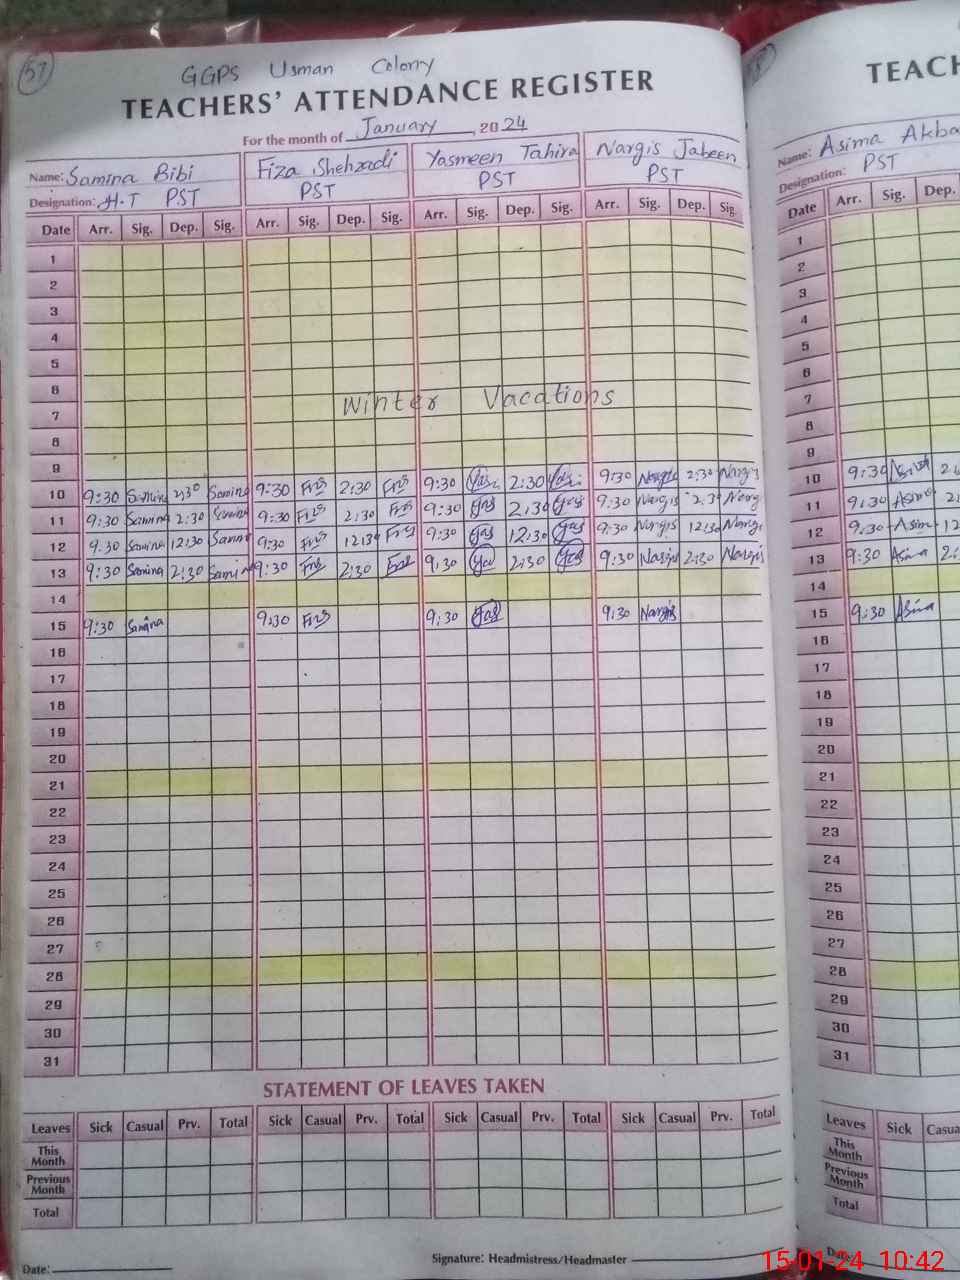 57
GGPS Usman Colony
TEACHERS' ATTENDANCE REGISTER
For the month of January, 2024
Name: Samina Bibi Fiza Shehzadi Yasmeen Tahira Nargis Jabeen
Designation: H.T PST PST PST PST
Date Arr. Sig. Dep. Sig. Arr. Sig. Dep. Sig. Arr. Sig. Dep. Sig. Arr. Sig. Dep. Sig.
1
2
3
4
5
6
7
Winter Vacations
8
9
10 9:30 Samina 2:30 Samina 9:30 2:30 9:30 Yas 2:30 Yas 9:30 Nargis 2:30 Nargis
11 9:30 Samina 2:30 Samina 9:30 2:30 9:30 Yas 2:30 Yas 9:30 Nargis 2:30 Narg
12 9:30 Samina 12:30 Samina 9:30 12:30 9:30 Yas 12:30 Yas 9:30 Nargis 12:30 Nargis
13 9:30 Samina 2:30 Samina 9:30 2:30 9:30 Yas 2:30 Yas 9:30 Nargis 2:30 Nargis
14
15 9:30 Samina 9:30 9:30 Yas 9:30 Nargis
16
17
18
19
20
21
22
23
24
25
26
27
28
29
30
31
STATEMENT OF LEAVES TAKEN
Leaves Sick Casual Prv. Total Sick Casual Prv. Total Sick Casual Prv. Total Sick Casual Prv. Total
This Month
Previous Month
Total
Date:
Signature: Headmistress/Headmaster
TEACH
Name: Asima Akba
Designation: PST
Date Arr. Sig. Dep.
1
2
3
4
5
6
7
8
9
10 9:30 Asima 2
11 9:30 Asima 2
12 9:30 Asim 12
13 9:30 Asima 2
14
15 9:30 Asima
16
17
18
19
20
21
22
23
24
25
26
27
28
29
30
31
Leaves Sick Casua
This Month
Previous Month
Total
Date:
15-01-24 10:42